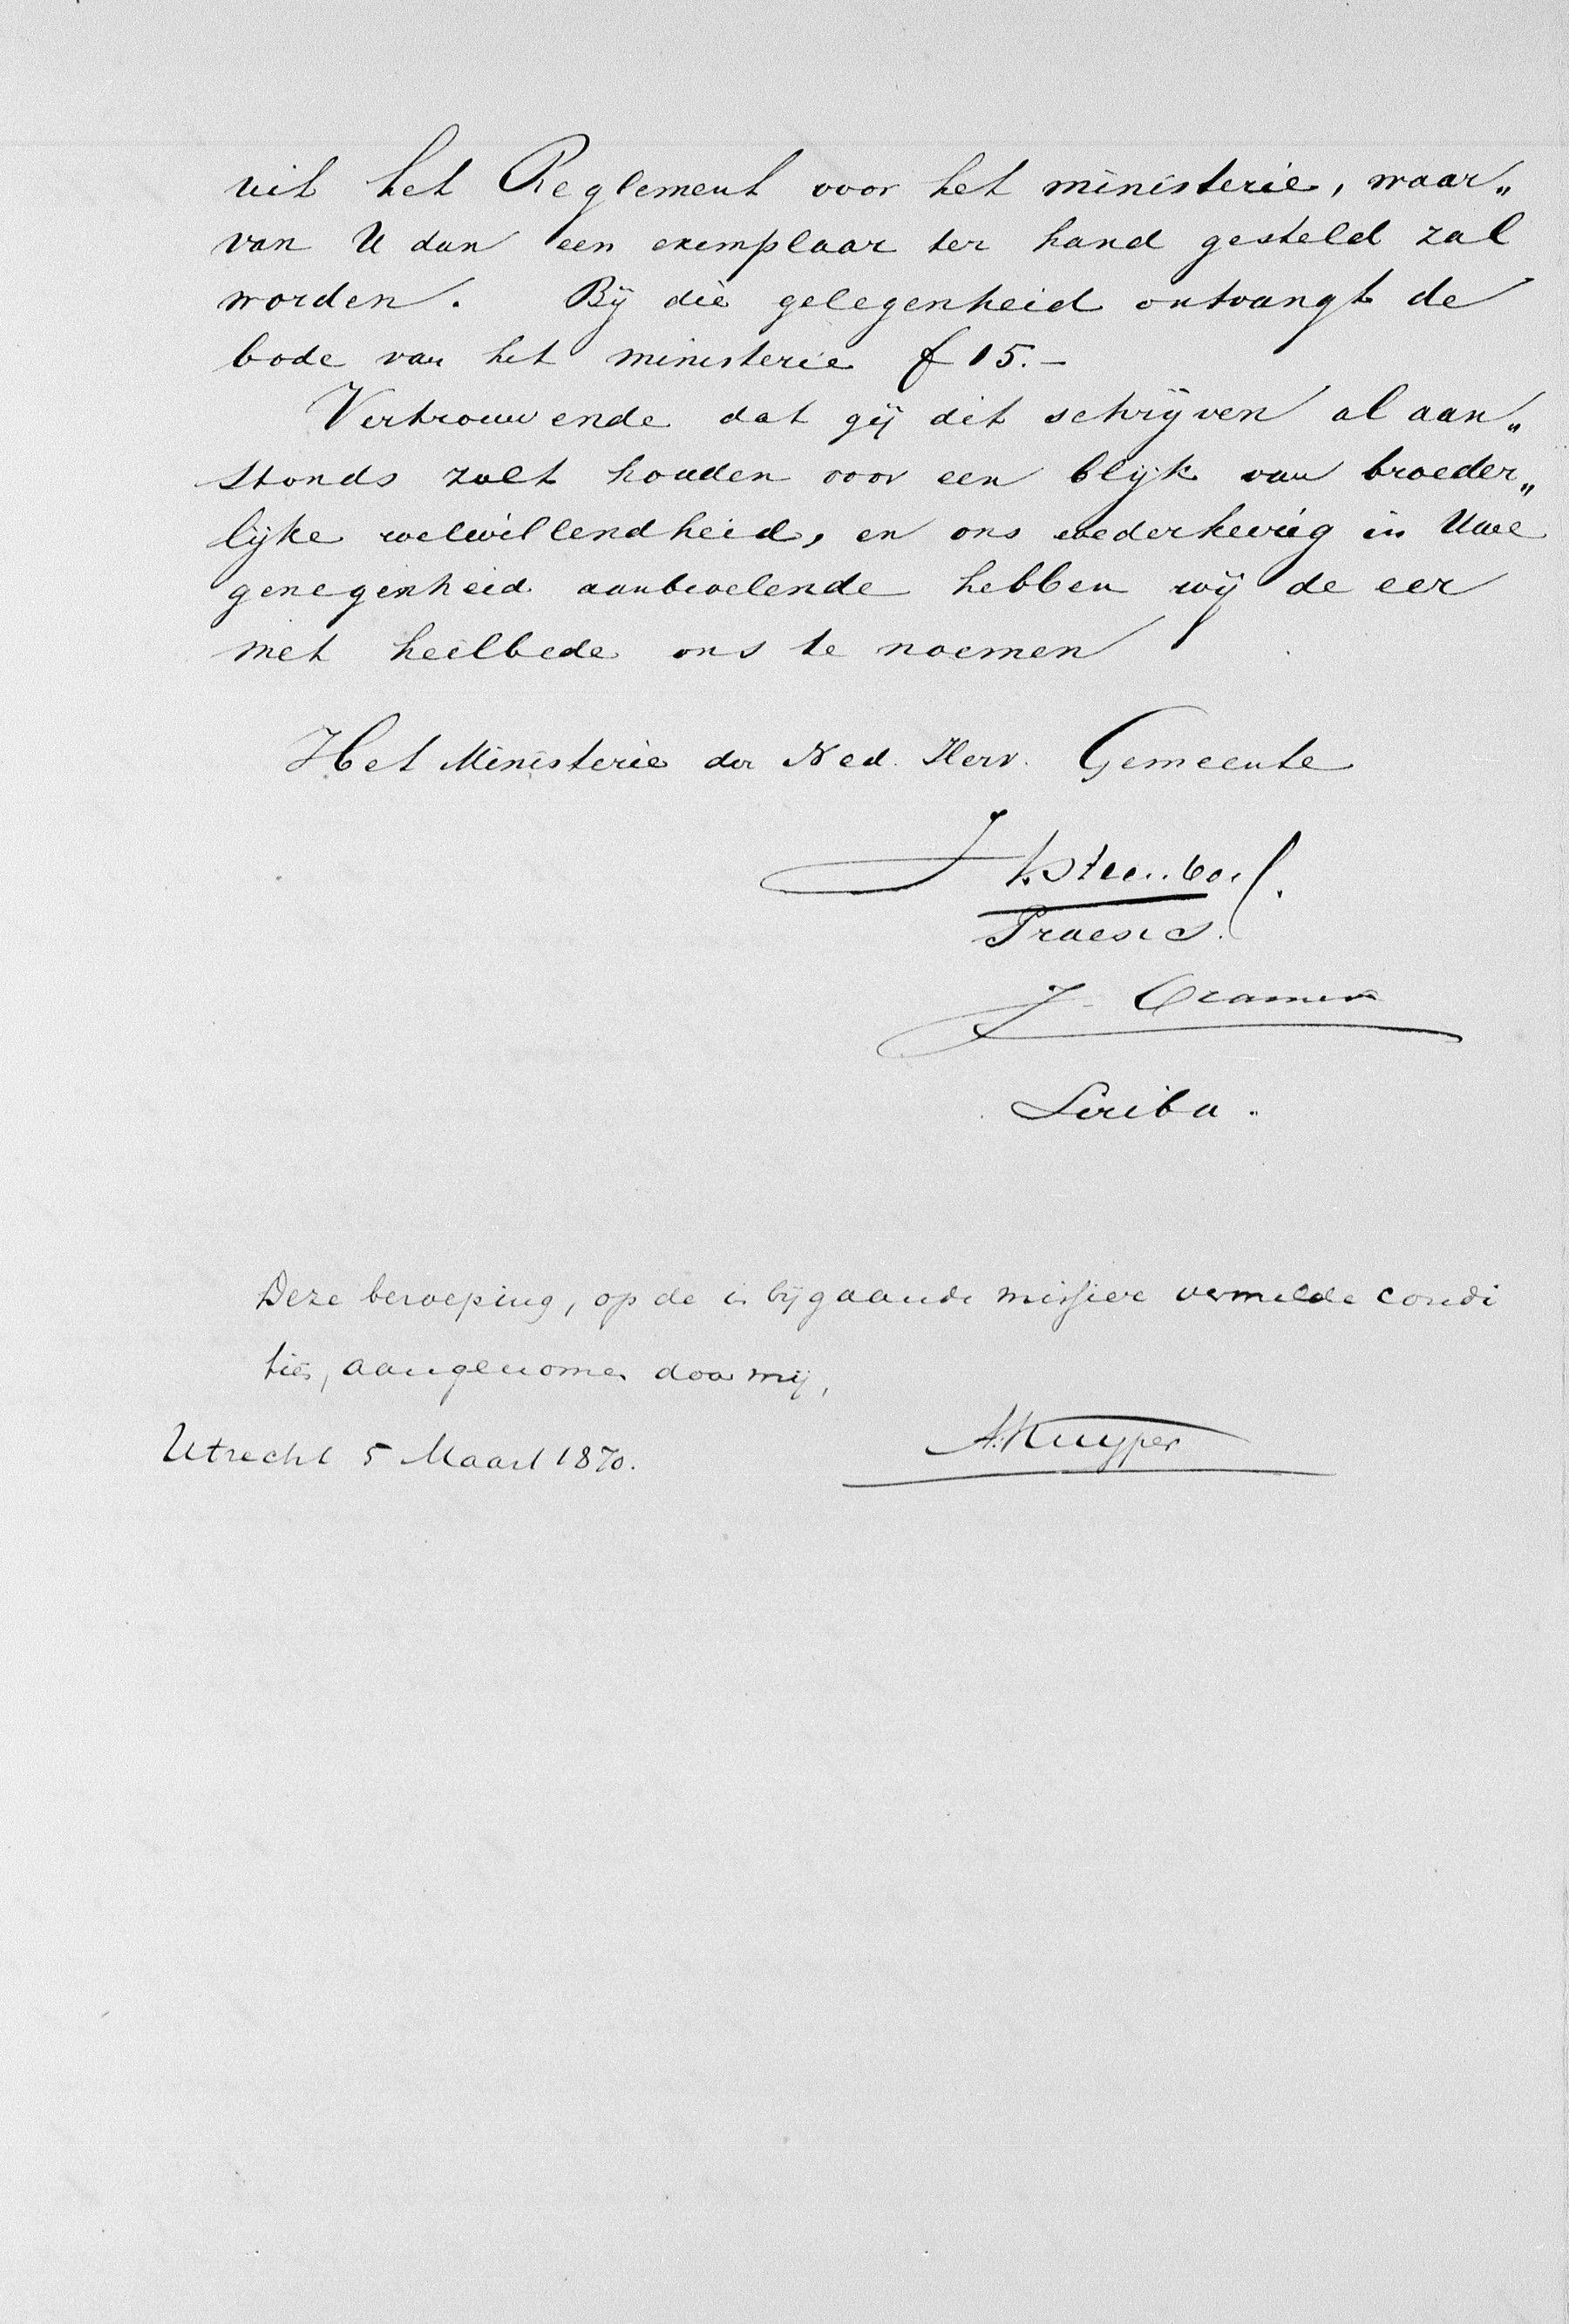 uit het Reglement voor het ministerie, waar„
van U dan een exemplaar ter hand gesteld zal
worden. Bij die gelegenheid ontvangt de
bode van het ministerie f 15.–
Vertrouwende dat gij dit schrijven al aan„
stonds zult houden voor een blijk van broeder„
lijke welwillendheid, en ons wederkeerig in Uwe
genegenheid aanbevelende hebben wij de eer
met heilbede ons te noemen
Het Ministerie der Ned. Herv. Gemeente
Praeses.
J. Cramer
Scriba.
Deze beroeping, op de in bijgaande missive vermelde condi
ties, aangenomen door mij,
A. Kuyper
Utrecht 5 Maart 1870.